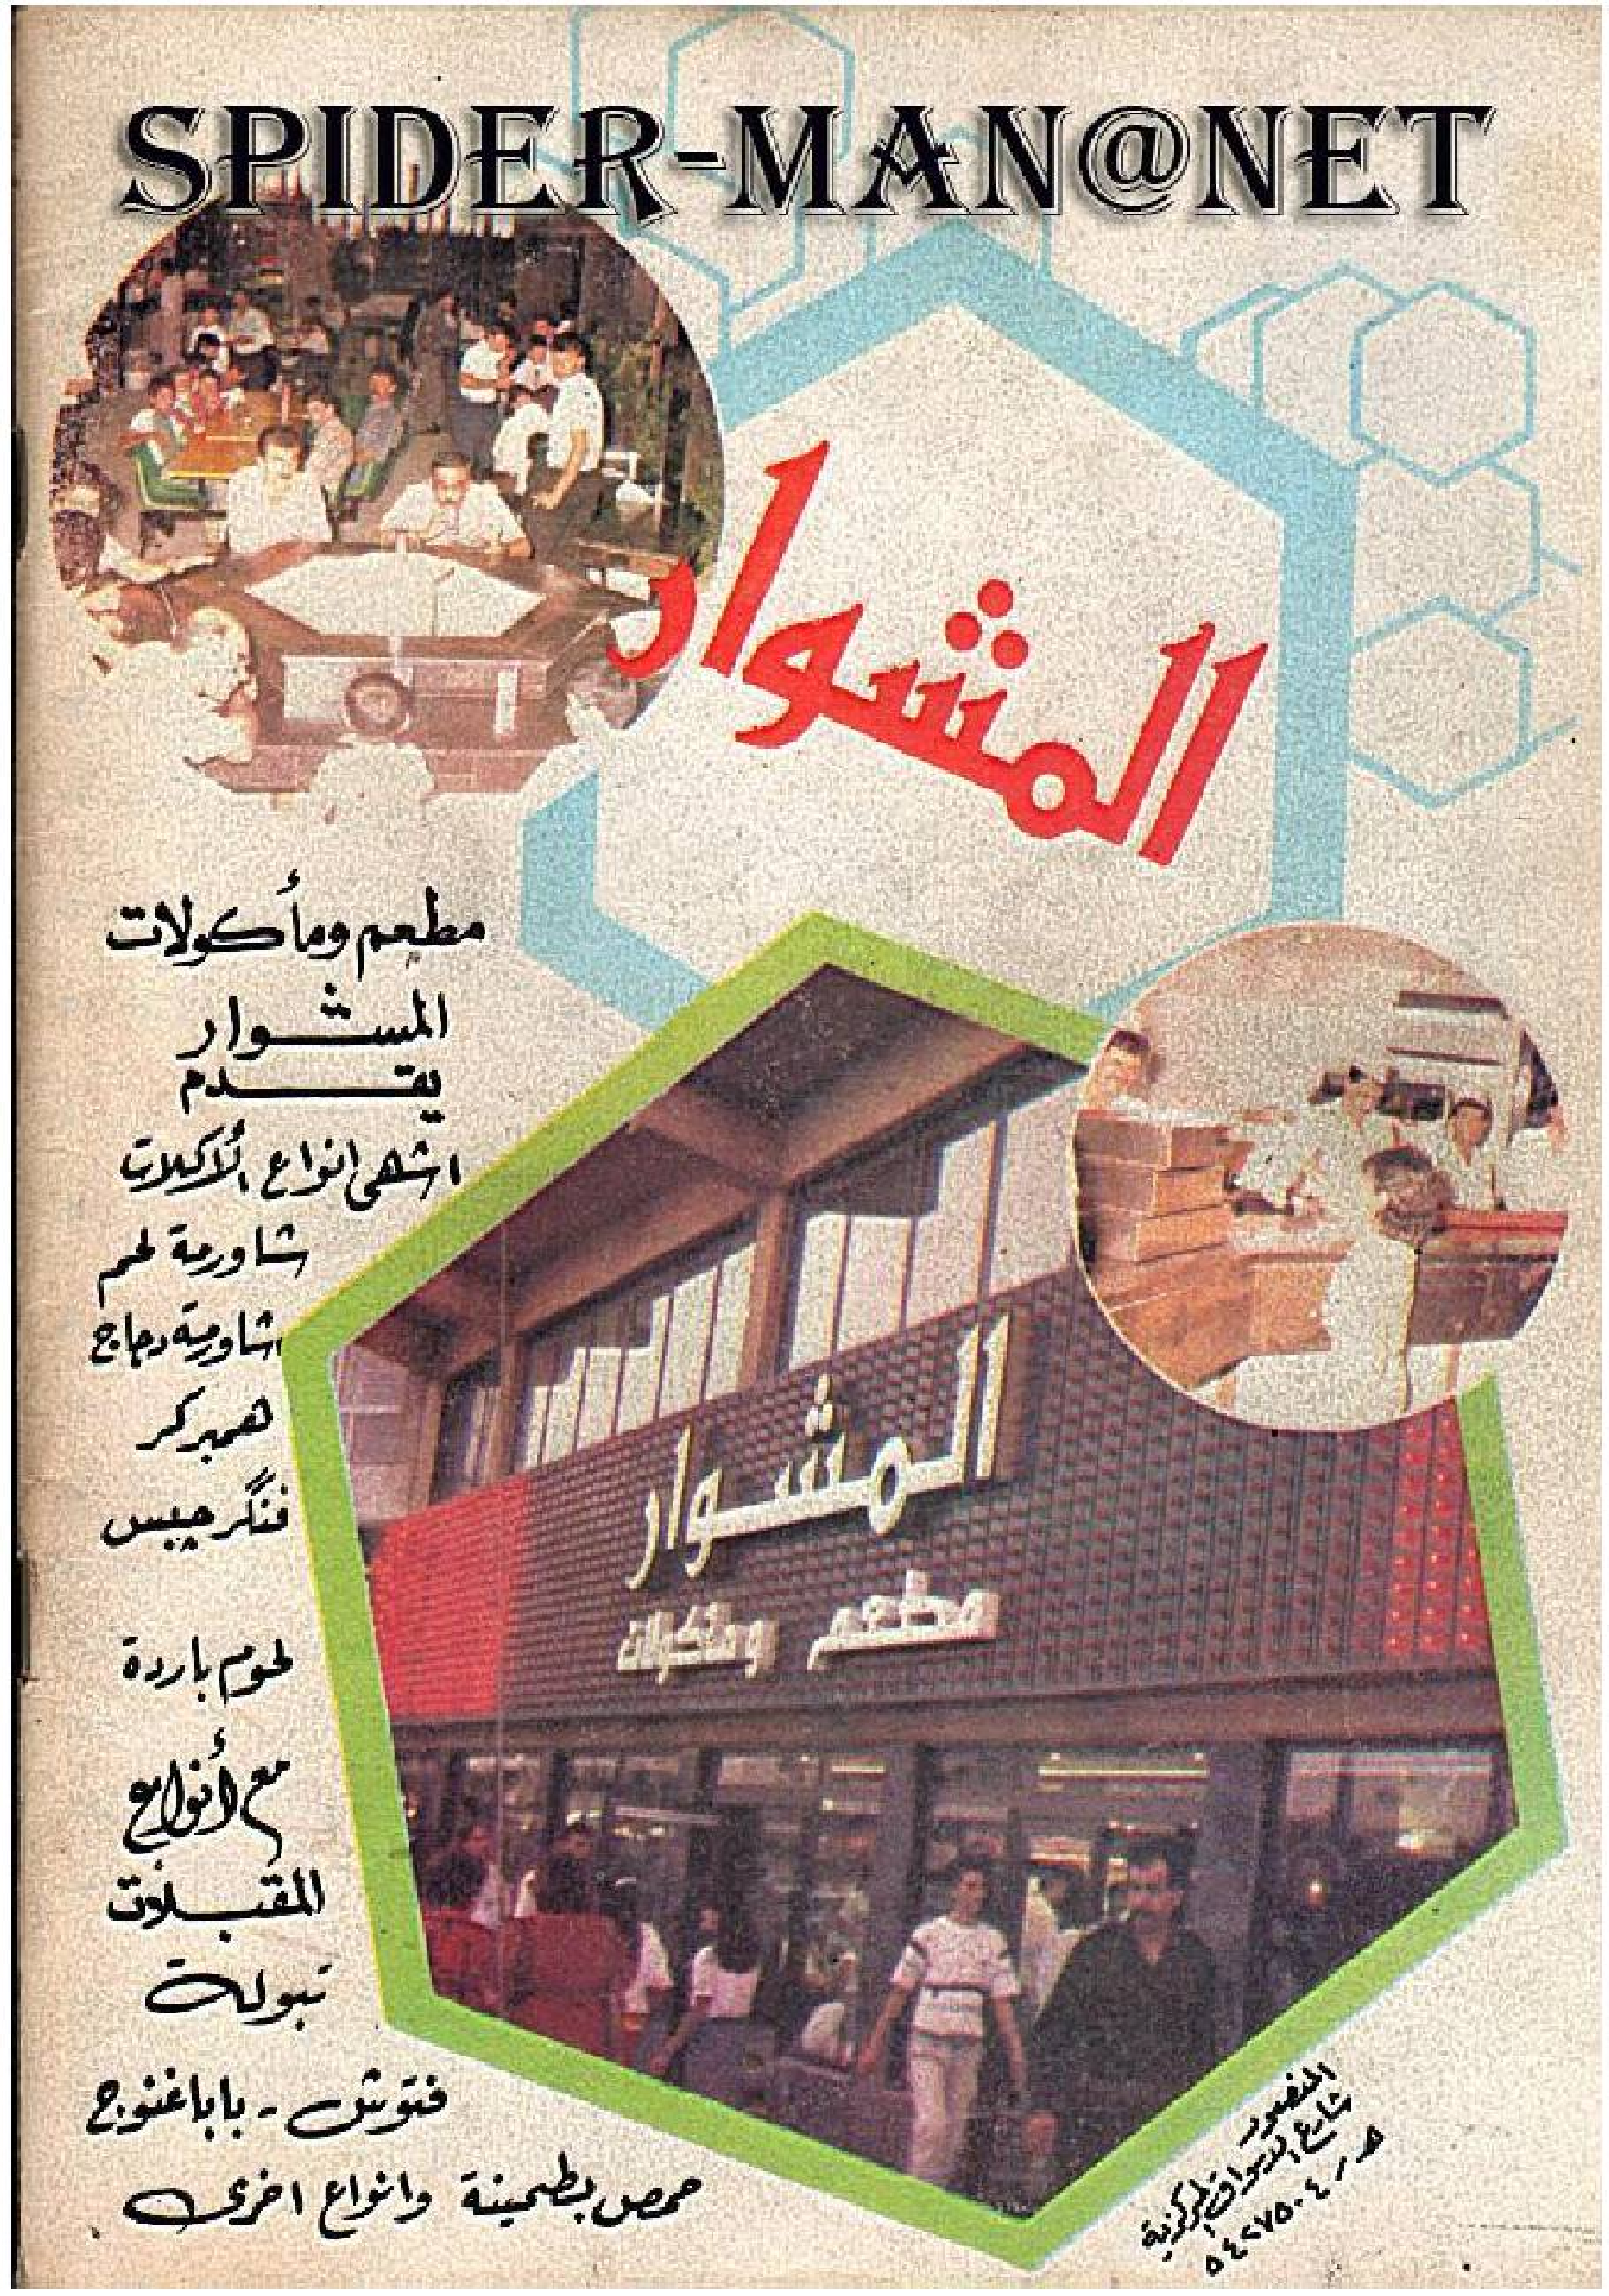 SPIDER-MAN@NET
المشوار
مطعم ومأكولات
المشوار
يقدم
اشهى انواع الأكلات
شاورمة لحم
شاورمة دجاج
همبركر
فنگر جيبس
لحوم باردة
مع أنواع
المقبلات
تبولة
فتوش - بابا غنوج
حمص بطحينة وانواع اخرى
المشوار
مطعم ومأكولات
المنصور
شارع الاسواق المركزية